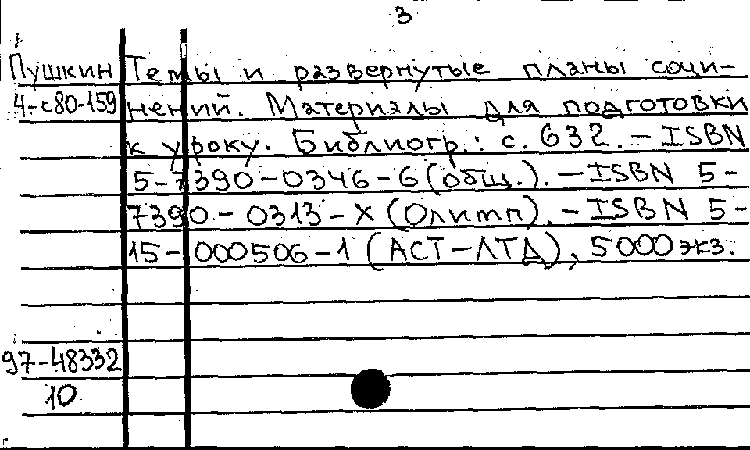 3
Пушкин Темы и развернутые планы сочи-
4-с80-159 нений. Материалы для подготовки
к уроку. Библиогр.: с. 632. – ISBN
5-7390-0346-6 (общ.). – ISBN 5-
7390-0313-X (Олимп). – ISBN 5-
15-000506-1 (АСТ-ЛТД), 5000 экз.
97-48332
10